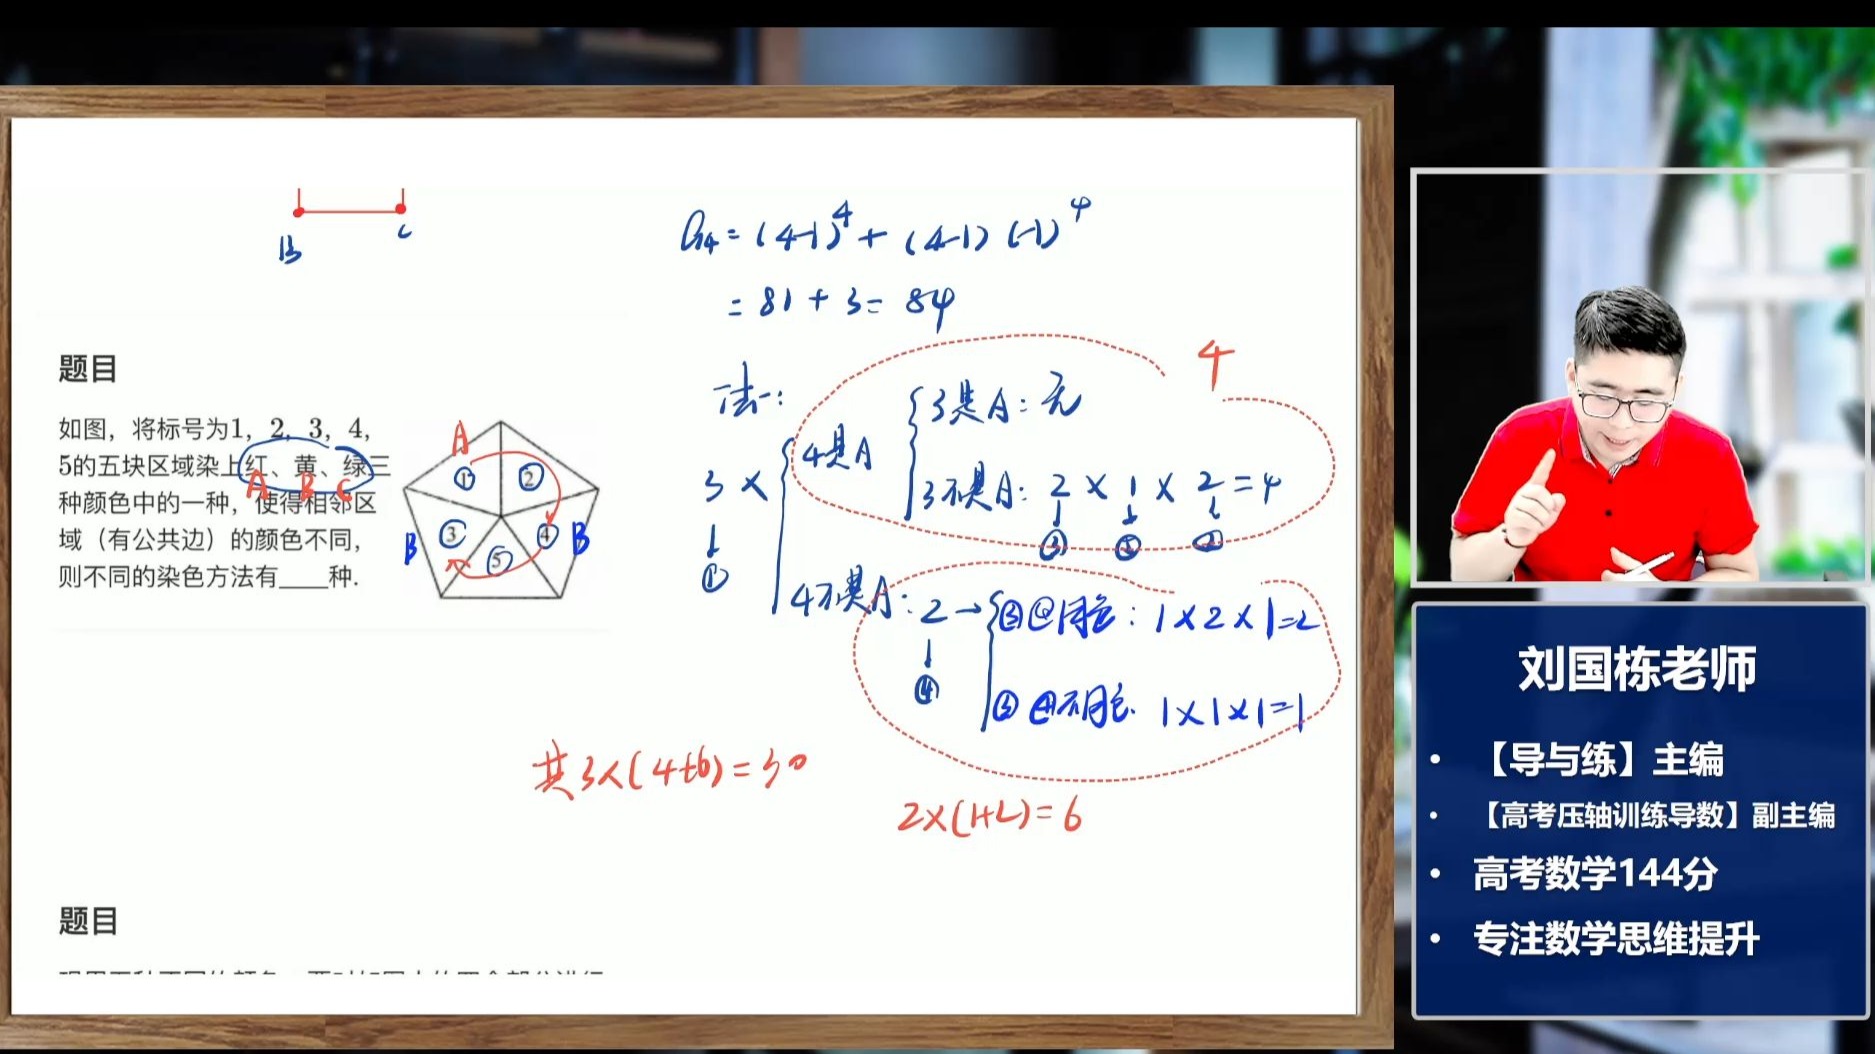 B
C
a4=(4-1)^4+(4-1)(-1)^4
=81+3=84
题目
如图，将标号为1，2，3，4，
5的五块区域染上红、黄、绿三
种颜色中的一种，使得相邻区
域（有公共边）的颜色不同，
则不同的染色方法有____种.
A B C
A
① ②
B ③ ④ B
⑤
法一：
4
3×
①
4是A
3是A：无
3不是A：2×1×2=4
③ ⑤ ②
4不是A：2→
④
③④同色：1×2×1=2
③④不同色：1×1×1=1
共3×(4+6)=30
2×(1+2)=6
题目
刘国栋老师
• 【导与练】主编
• 【高考压轴训练导数】副主编
• 高考数学144分
• 专注数学思维提升